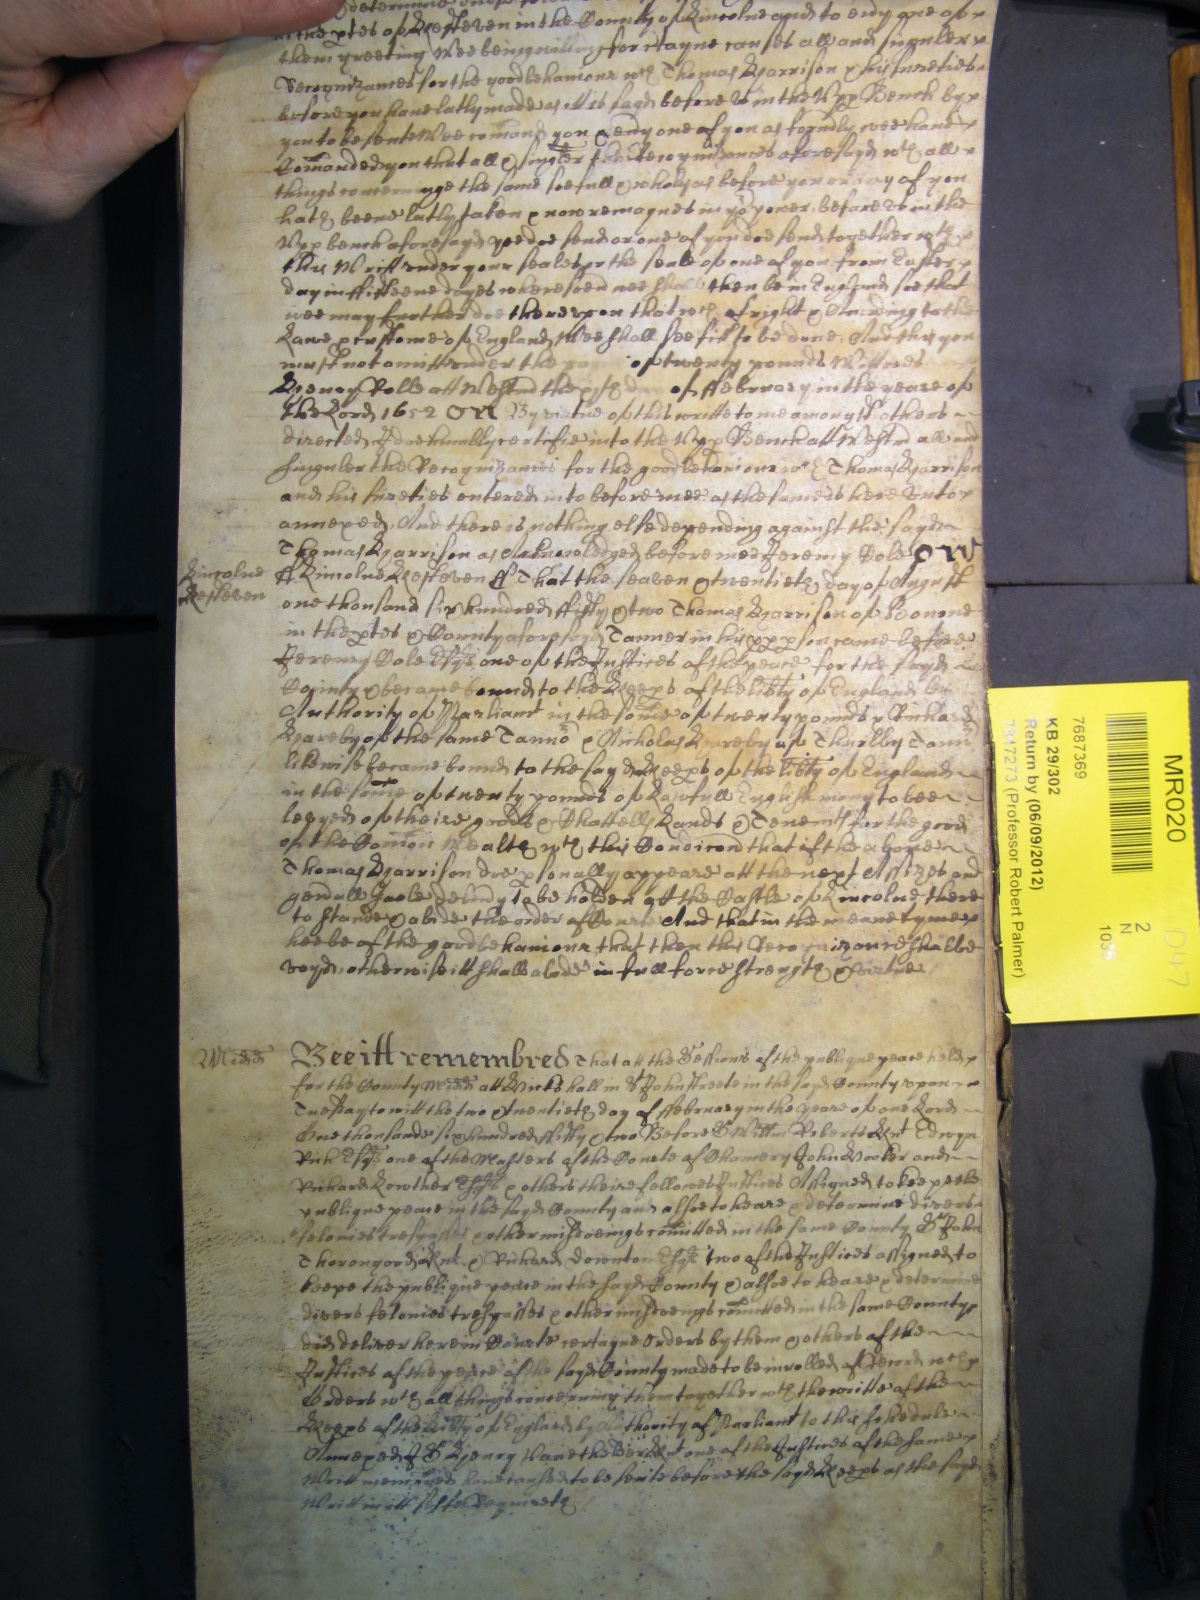 in the ptes of Kesteven in the County of Lincolne and to evy one of
them greeting Wee being willing for ctayne causes all and singuler
Recognizances for the good behaviour wch Thomas Harrison & his sureties
before you have latly made as itt is sayd before us in the Upp Bench by
you to be sente Wee comand you & evy one of you as formly wee have
Comanded you that all & singler the Recognizances aforesayd wth all
things concerninge the same soe full & wholy as before you or any of you
hath beene latly taken & now remaynes in yor power, before us in the
Upp bench aforesayd yee doe send or one of you doe send together wth
this Writt under your seales or the seale of one of you from Easter
day in fifteene dayes wheresoevr wee shall then be in England soe that
wee may further doe thereupon that wch of right & According to the
Lawe & custome of England Wee shall see fitt to be done, And this you
must not omitt under the of twenty pounds Wittnes
Henry Rolle att Westm the of February in the yeare of
the Lord 1652 By virtue of this writte to me amongst others
directed I doe humbly certifie into the Upp Bench att Westm all and
Singuler the Recognizances for the good behaviour wch Thomas Harrison
and his sureties entered into before mee as the same is here unto
annexed, And there is nothing else depending against the sayd
Thomas Harrison as Acknowledged before mee Jeremy Cole
Lincolne
Kesteven
ss Lincolne Kesteven ss That the seaven & twentieth day of August
one thousand six hundred fifty & two Thomas Harrison of
in the ptes & County aforesayd Tanner in his pp pson came before
Jeremy Cole Esqr one of the Justices of the peace for the sayd
County & became bound to the Keeps of the libty of England by
Authority of Parliamt in the some of twenty pounds & Richard
Hareby of the same Tannr & Nicholas Hareby of Thurlby Tannr
likewise became bound to the sayd Keeps of the libty of England
in the some of twenty pounds of Lawfull English mony to bee
levyed of theire goods & Chattells Lands & Tenemts for the good
of the Comon Wealth wth this Condicon that if the above
Thomas Harrison doe psonally appeare att the next Assizes and
genrall Gaole delivy to be holden att the Castle of Lincolne there
to stand & abide the order of Courte And that in the meane tyme
hee be of the good behaviour that then this Recognizance shall be
voyd otherwise itt shall abide in full force strength & virtue
Midd
Bee itt remembred That att the Sessions of the publique peace held
for the County Midd att Hicks hall in St John Streete in the sayd County upon
Tuesday to witt the two & twentieth day of February in the yeare of our Lord
One thousand six hundred fifty & two Before Sr Willm Roberts Knt Edwyn
Rich Esqr one of the Masters of the Courte of Chancery John Hooker and
Richard Lowther Esqrs & others theire fellowes Justices Assigned to keepe the
publique peace in the sayd County and alsoe to heare & determine divers
felonies trespasses & other misdoeings comitted in the same County Sr John
Thorowgood Knt & Richard Downton Esqr two of the Justices assigned to
keepe the publique peace in the sayd County & alsoe to heare & determine
divers felonies trespasses & other misdoeings comitted in the same County
did deliver here in Courte certayne Orders by them & others of the
Justices of the peace of the sayd County made to be inrolled of Record wch
Orders wth all things concerning them together wth the writte of the
Keeps of the libty of England by Authority of Parliamt to this schedule
Annexed I Sr Henry Vane the elder Knt one of the Justices of the same
Writt menconed have caused to be sente before the sayd Keeps as the sayd
Writt in itt selfe Requireth
MR020
7687369
KB 29/302
Return by (06/09/2012)
7347273 (Professor Robert Palmer)
2
N
D47